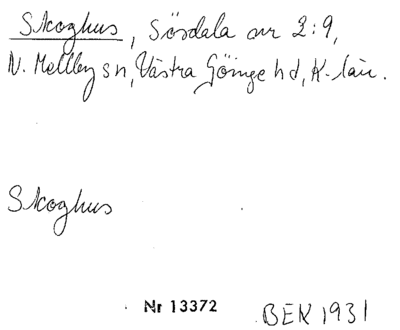 Skoghus, Sösdala nr 2:9,
N. Mellby sn, Västra Göinge hd, K-län.
Skoghus
Nr 13372 BEK 1931